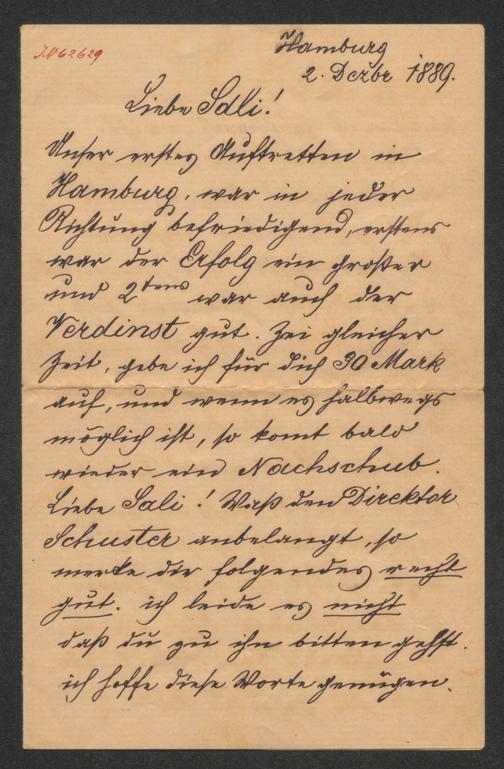 JN 62629
Hamburg
2. Dezbr 1889.
Liebe Sali!
Unser erstes Auftretten in
Hamburg, war in jeder
Richtung befriedigend, erstens
war der Erfolg ein großer
und 2tens war auch der
Verdinst gut. Zei gleicher
Zeit, gebe ich für dich 30 Mark
auf, und wenn es halbwegs
möglich ist, so komt bald
wieder ein Nachschub.
Liebe Sali! Waß den Direktor
Schuster anbelangt, so
merke dir folgendes recht
gut. ich leide es nicht
daß du zu ihn bitten gehst.
ich hoffe diese Worte genügen.